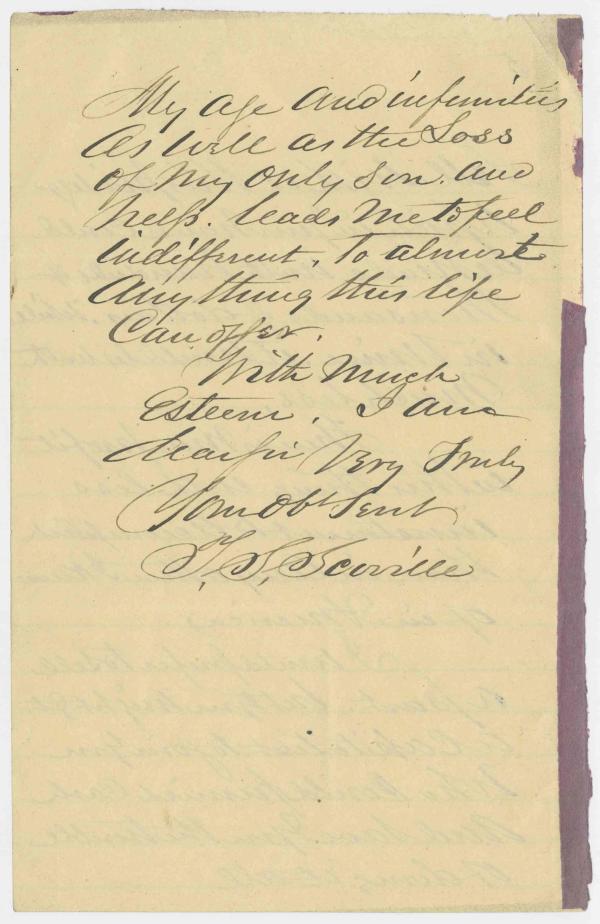 My age and infirmities
As well as the Loss
of My Only Son. and
help. leads me to feel
indifferent, To almost
Anything this life
Can offer.
With Much
Esteem. I am
Dear Sir Very Truly
Your Obt Servt
T. S. Scoville